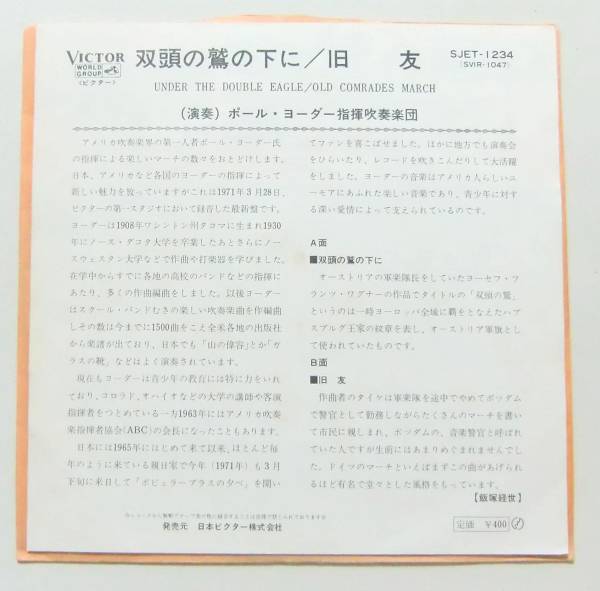 VICTOR
WORLD
GROUP
〈ビクター〉
双頭の鷲の下に/旧 友
SJET-1234
(SVIR-1047)
UNDER THE DOUBLE EAGLE/OLD COMRADES MARCH
(演奏) ポール・ヨーダー指揮吹奏楽団
アメリカ吹奏楽界の第一人者ポール・ヨーダー氏
の指揮による楽しいマーチの数々をおとどけします。
日本、アメリカなど各国のヨーダーの指揮によって
新しい魅力を放っていますがこれは1971年3月28日、
ビクターの第一スタジオにおいて録音した最新盤です。
ヨーダーは1908年ワシントン州タコマに生まれ1930
年にノース・ダコタ大学を卒業したあとさらにノー
スウェスタン大学などで作曲や打楽器を学びました。
在学中からすでに各地の高校のバンドなどの指揮に
あたり、多くの作曲編曲をしました。以後ヨーダー
はスクール・バンドむきの楽しい吹奏楽曲を作編曲
しその数は今までに1500曲をこえ全米各地の出版社
から楽譜が出ており、日本でも「山の偉容」とか「ガ
ラスの靴」などはよく演奏されています。
現在もヨーダーは青少年の教育には特に力をいれ
ており、コロラド、オハイオなどの大学の講師や客演
指揮者をつとめている一方1963年にはアメリカ吹奏
楽指揮者協会(ABC)の会長になったこともあります。
日本には1965年にはじめて来て以来、ほとんど毎
年のように来ている親日家で今年(1971年)も3月
下旬に来日して「ポピュラーブラスの夕べ」を開い
てファンを喜こばせました。ほかに地方でも演奏会
をひらいたり、レコードを吹きこんだりして大活躍
をしました。ヨーダーの音楽はアメリカ人らしいユ
ーモアにあふれた楽しい音楽であり、青少年に対す
る深い愛情によって支えられているのです。
A面
■双頭の鷲の下に
オーストリアの軍楽隊長をしていたヨーセフ・フ
ランツ・ワグナーの作品でタイトルの「双頭の鷲」
というのは一時ヨーロッパ全域に覇をとなえたハプ
スブルグ王家の紋章を表し、オーストリア軍旗とし
て使われていたものです。
B面
■旧 友
作曲者のタイケは軍楽隊を途中でやめてポツダム
で警官として勤務しながらたくさんのマーチを書い
て市民に親しまれ、ポツダムの、音楽警官と呼ばれ
ていた人ですが生前にはあまりめぐまれませんでし
た。ドイツのマーチといえばまずこの曲があげられ
るほど有名で堂々とした風格をもっています。
【飯塚経世】
発売元 日本ビクター株式会社
定価 ¥400